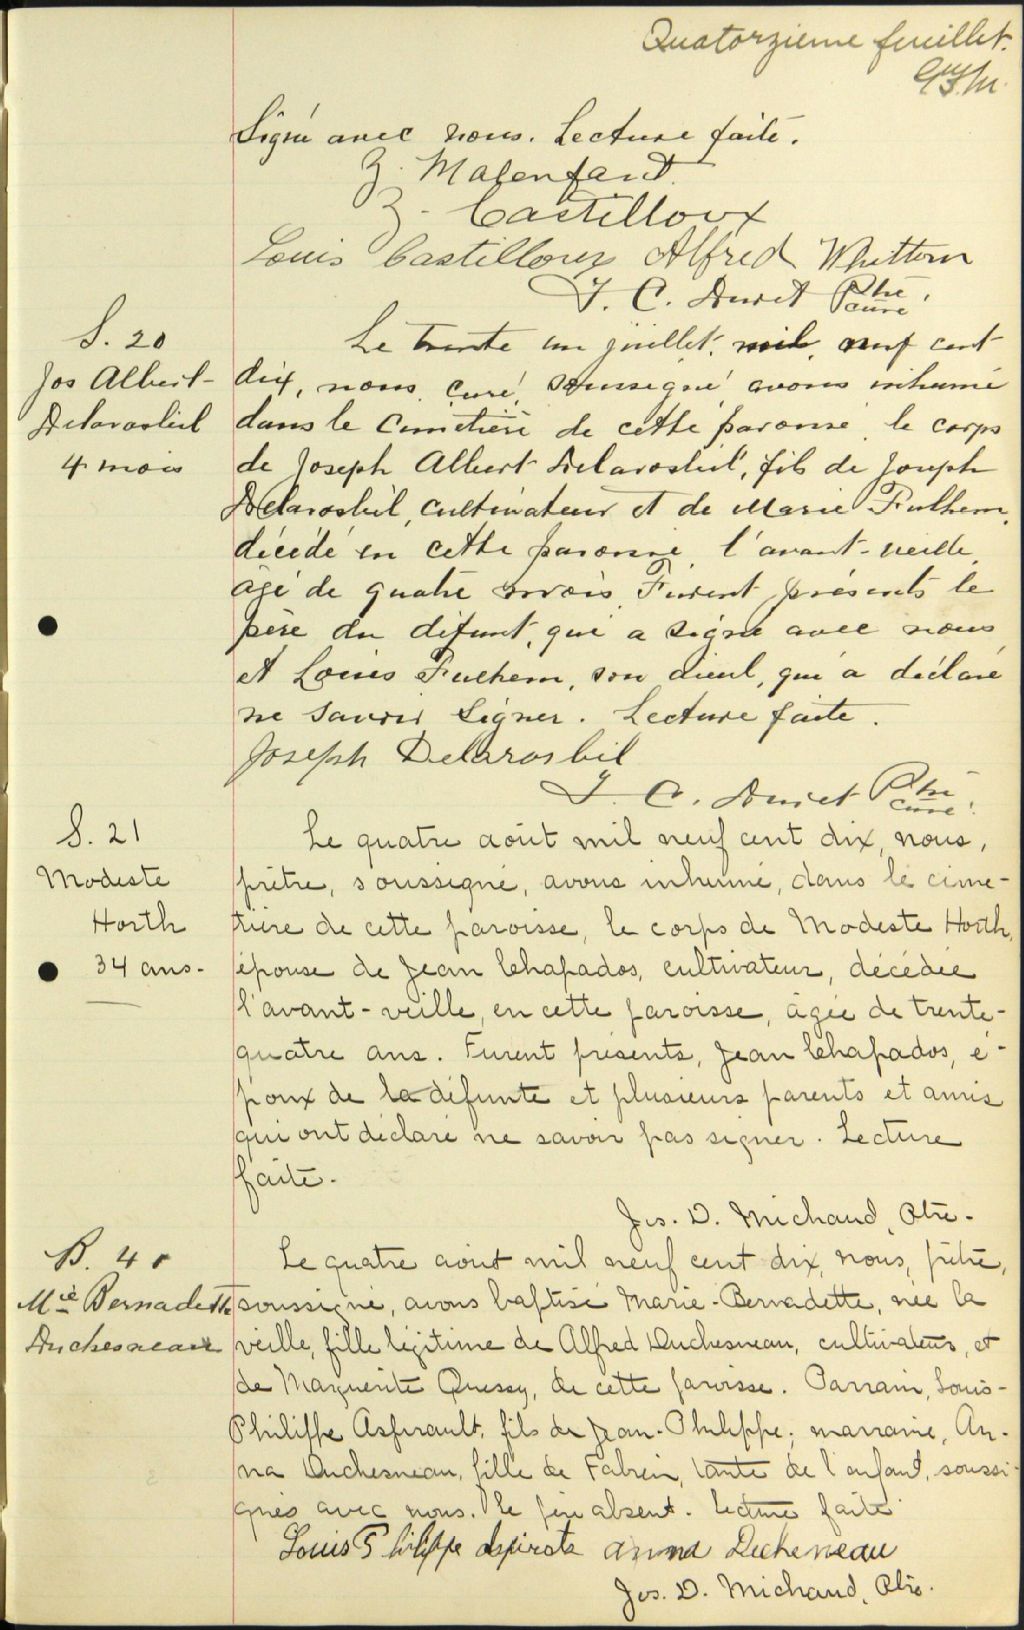 Quatorzième feuillet.
Signé avec nous. Lecture faite.
Z. Malenfant
Z. Castilloux
Louis Castilloux Alfred Whittom
J. C. Duret Ptre curé
S. 20
Jos Albert
Delarosbil
4 mois
Le trente un juillet, mil neuf cent
dix, nous curé soussigné avons inhumé
dans le cimetière de cette paroisse le corps
de Joseph Albert Delarosbil, fils de Joseph
Delarosbil, cultivateur et de Marie Fulhem,
décédé en cette paroisse l'avant-veille
âgé de quatre mois. Furent présents le
père du défunt, qui a signé avec nous
et Louis Fulhem, son aïeul, qui a déclaré
ne savoir signer. Lecture faite.
Joseph Delarosbil
J. C. Duret Ptre curé
S. 21
Modeste
Horth
34 ans.
Le quatre août mil neuf cent dix, nous,
prêtre, soussigné, avons inhumé, dans le cime-
tière de cette paroisse, le corps de Modeste Horth,
épouse de Jean Chapados, cultivateur, décédée
l'avant-veille, en cette paroisse, âgée de trente-
quatre ans. Furent présents, Jean Chapados, é-
poux de la défunte et plusieurs parents et amis
qui ont déclaré ne savoir pas signer. Lecture
faite.
Jos. D. Michaud, Ptre.
B. 41
Mie Bernadette
Duchesneau
Le quatre août mil neuf cent dix, nous, prêtre,
soussigné, avons baptisé Marie-Bernadette, née la
veille, fille légitime de Alfred Duchesneau, cultivateur, et
de Marguerite Quessy, de cette paroisse. Parrain, Louis-
Philippe Aspirault, fils de Jean-Philippe; marraine, An-
na Duchesneau, fille de Fabien, tante de l'enfant, soussi-
gnés avec nous. Le père absent. Lecture faite.
Louis Philippe Aspirot anna Duchesneau
Jos. D. Michaud, Ptre.